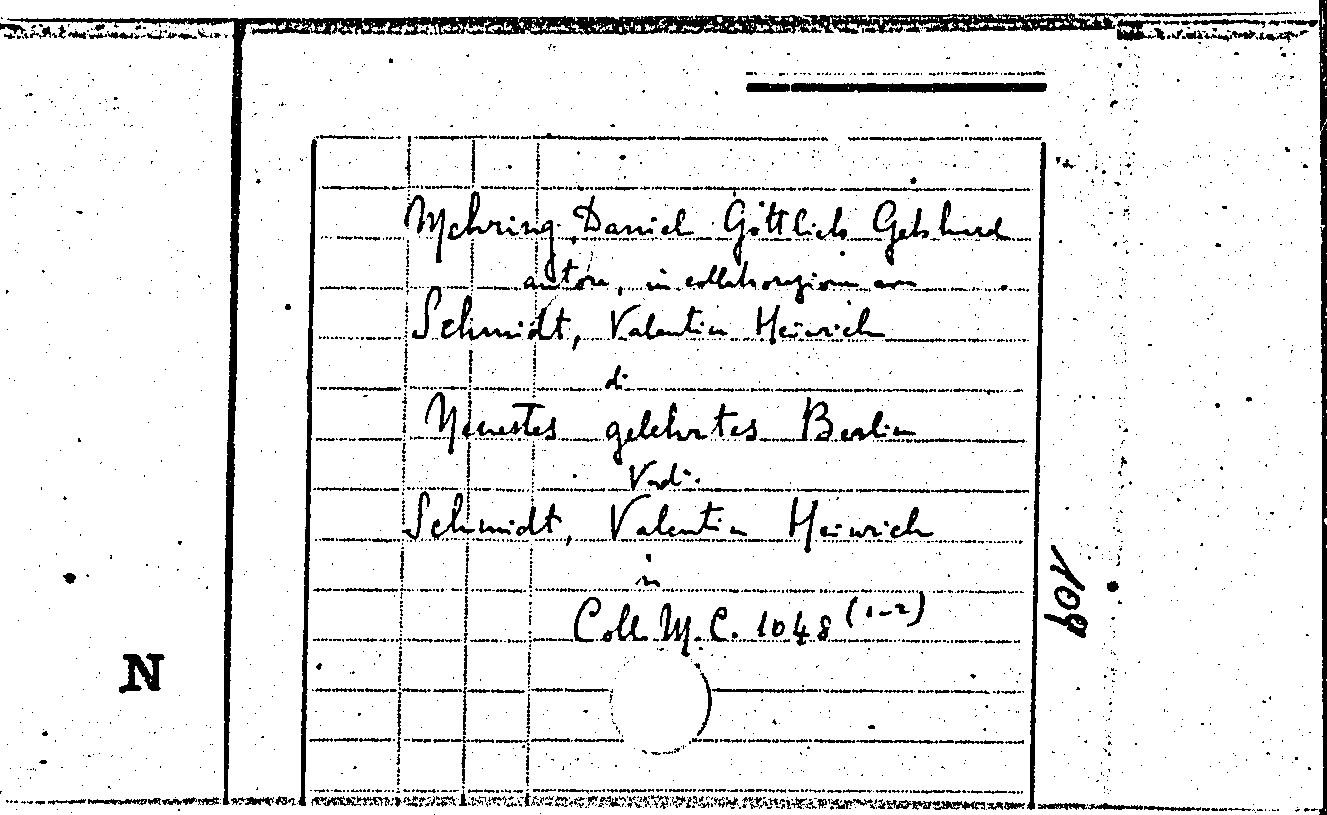 Mehring, Daniel Gottlieb Gebhard
autore, in collaborazione con
Schmidt, Valentin Heinrich
di
Neuestes gelehrtes Berlin
Vedi
Schmidt, Valentin Heinrich
in
Coll. M. C. 1048 (1-2)
109
N